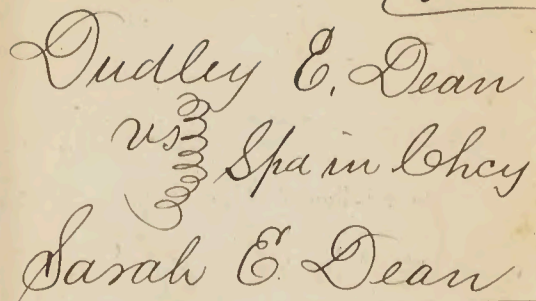 Dudley E. Dean
vs
Spa in Chcy
Sarah E. Dean